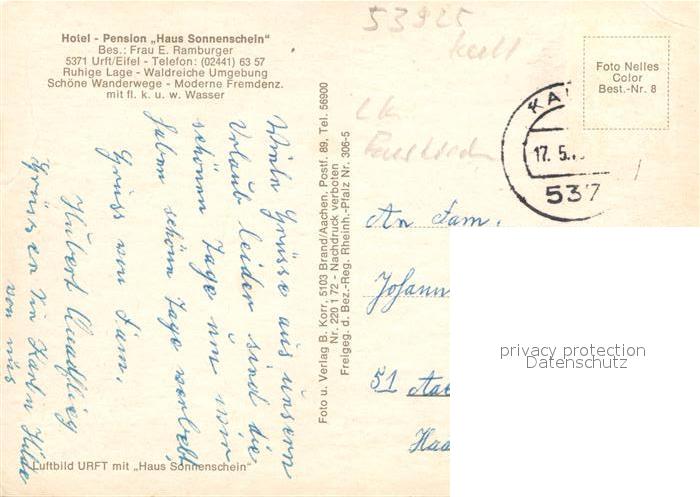 Hotel - Pension „Haus Sonnenschein"
Bes.: Frau E. Ramburger
5371 Urft/Eifel - Telefon: (02441) 63 57
Ruhige Lage - Waldreiche Umgebung
Schöne Wanderwege - Moderne Fremdenz.
mit fl. k. u. w. Wasser
53925
Kall
LK
Euskirchen
Foto Nelles
Color
Best.-Nr. 8
KA
17. 5.
537
Viele Grüsse aus unsern
Urlaub leider sind die
schönen Tage um wir
haben schöne Tage verlebt,
Gruss von Fam.
Hubert Quadflieg
Grüsse an Karl u Hilde
von uns
Foto u. Verlag B. Korr, 5103 Brand/Aachen, Postf. 89, Tel. 56900
Nr. 220 1 72 - Nachdruck verboten
Freigeg. d. Bez.-Reg. Rheinh.-Pfalz Nr. 306-5
An Fam.
Johann
51 Aa
Haa
privacy protection
Datenschutz
Luftbild URFT mit „Haus Sonnenschein"